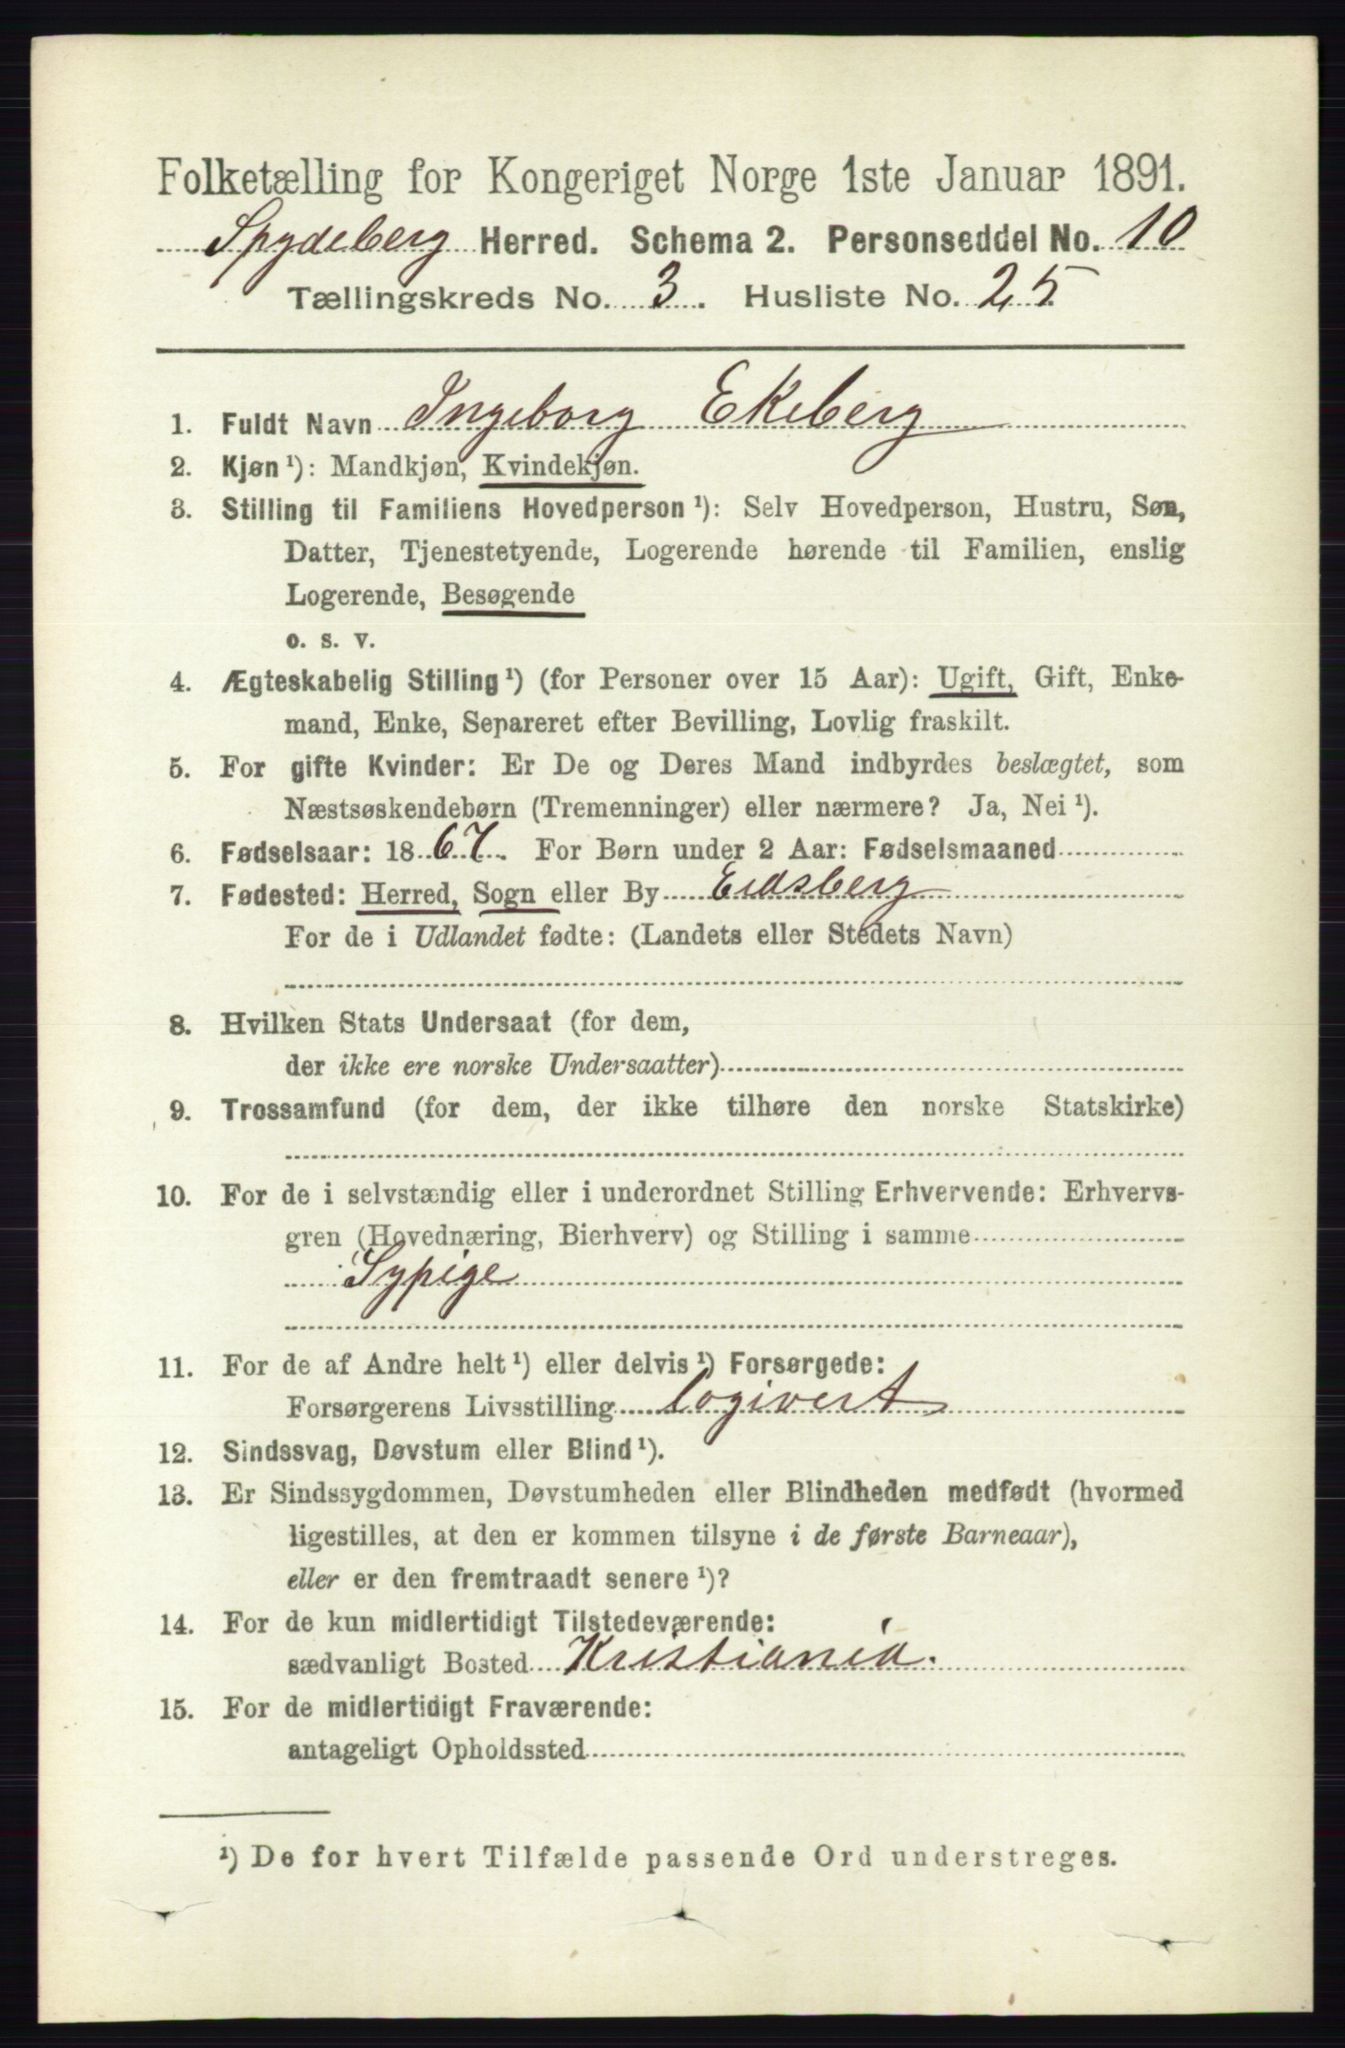 Folketælling for Kongeriget Norge 1ste Januar 1891.
Spydeberg Herred. Schema 2. Personseddel No. 10
Tællingskreds No. 3. Husliste No. 25
1. Fuldt Navn Ingeborg Ekeberg
2. Kjøn ¹): Mandkjøn, Kvindekjøn.
3. Stilling til Familiens Hovedperson ¹): Selv Hovedperson, Hustru, Søn,
Datter, Tjenestetyende, Logerende hørende til Familien, enslig
Logerende, Besøgende
o. s. v.
4. Ægteskabelig Stilling ¹) (for Personer over 15 Aar): Ugift, Gift, Enke-
mand, Enke, Separeret efter Bevilling, Lovlig fraskilt.
5. For gifte Kvinder: Er De og Deres Mand indbyrdes beslægtet, som
Næstsøskendebørn (Tremenninger) eller nærmere? Ja, Nei ¹).
6. Fødselsaar: 1867. For Børn under 2 Aar: Fødselsmaaned
7. Fødested: Herred, Sogn eller By Eidsberg
For de i Udlandet fødte: (Landets eller Stedets Navn)
8. Hvilken Stats Undersaat (for dem,
der ikke ere norske Undersaatter)
9. Trossamfund (for dem, der ikke tilhøre den norske Statskirke)
10. For de i selvstændig eller i underordnet Stilling Erhvervende: Erhvervs-
gren (Hovednæring, Bierhverv) og Stilling i samme
Sypige
11. For de af Andre helt ¹) eller delvis ¹) Forsørgede:
Forsørgerens Livsstilling logivert
12. Sindssvag, Døvstum eller Blind ¹).
13. Er Sindssygdommen, Døvstumheden eller Blindheden medfødt (hvormed
ligestilles, at den er kommen tilsyne i de første Barneaar),
eller er den fremtraadt senere ¹)?
14. For de kun midlertidigt Tilstedeværende:
sædvanligt Bosted Kristiania.
15. For de midlertidigt Fraværende:
antageligt Opholdssted
¹) De for hvert Tilfælde passende Ord understreges.